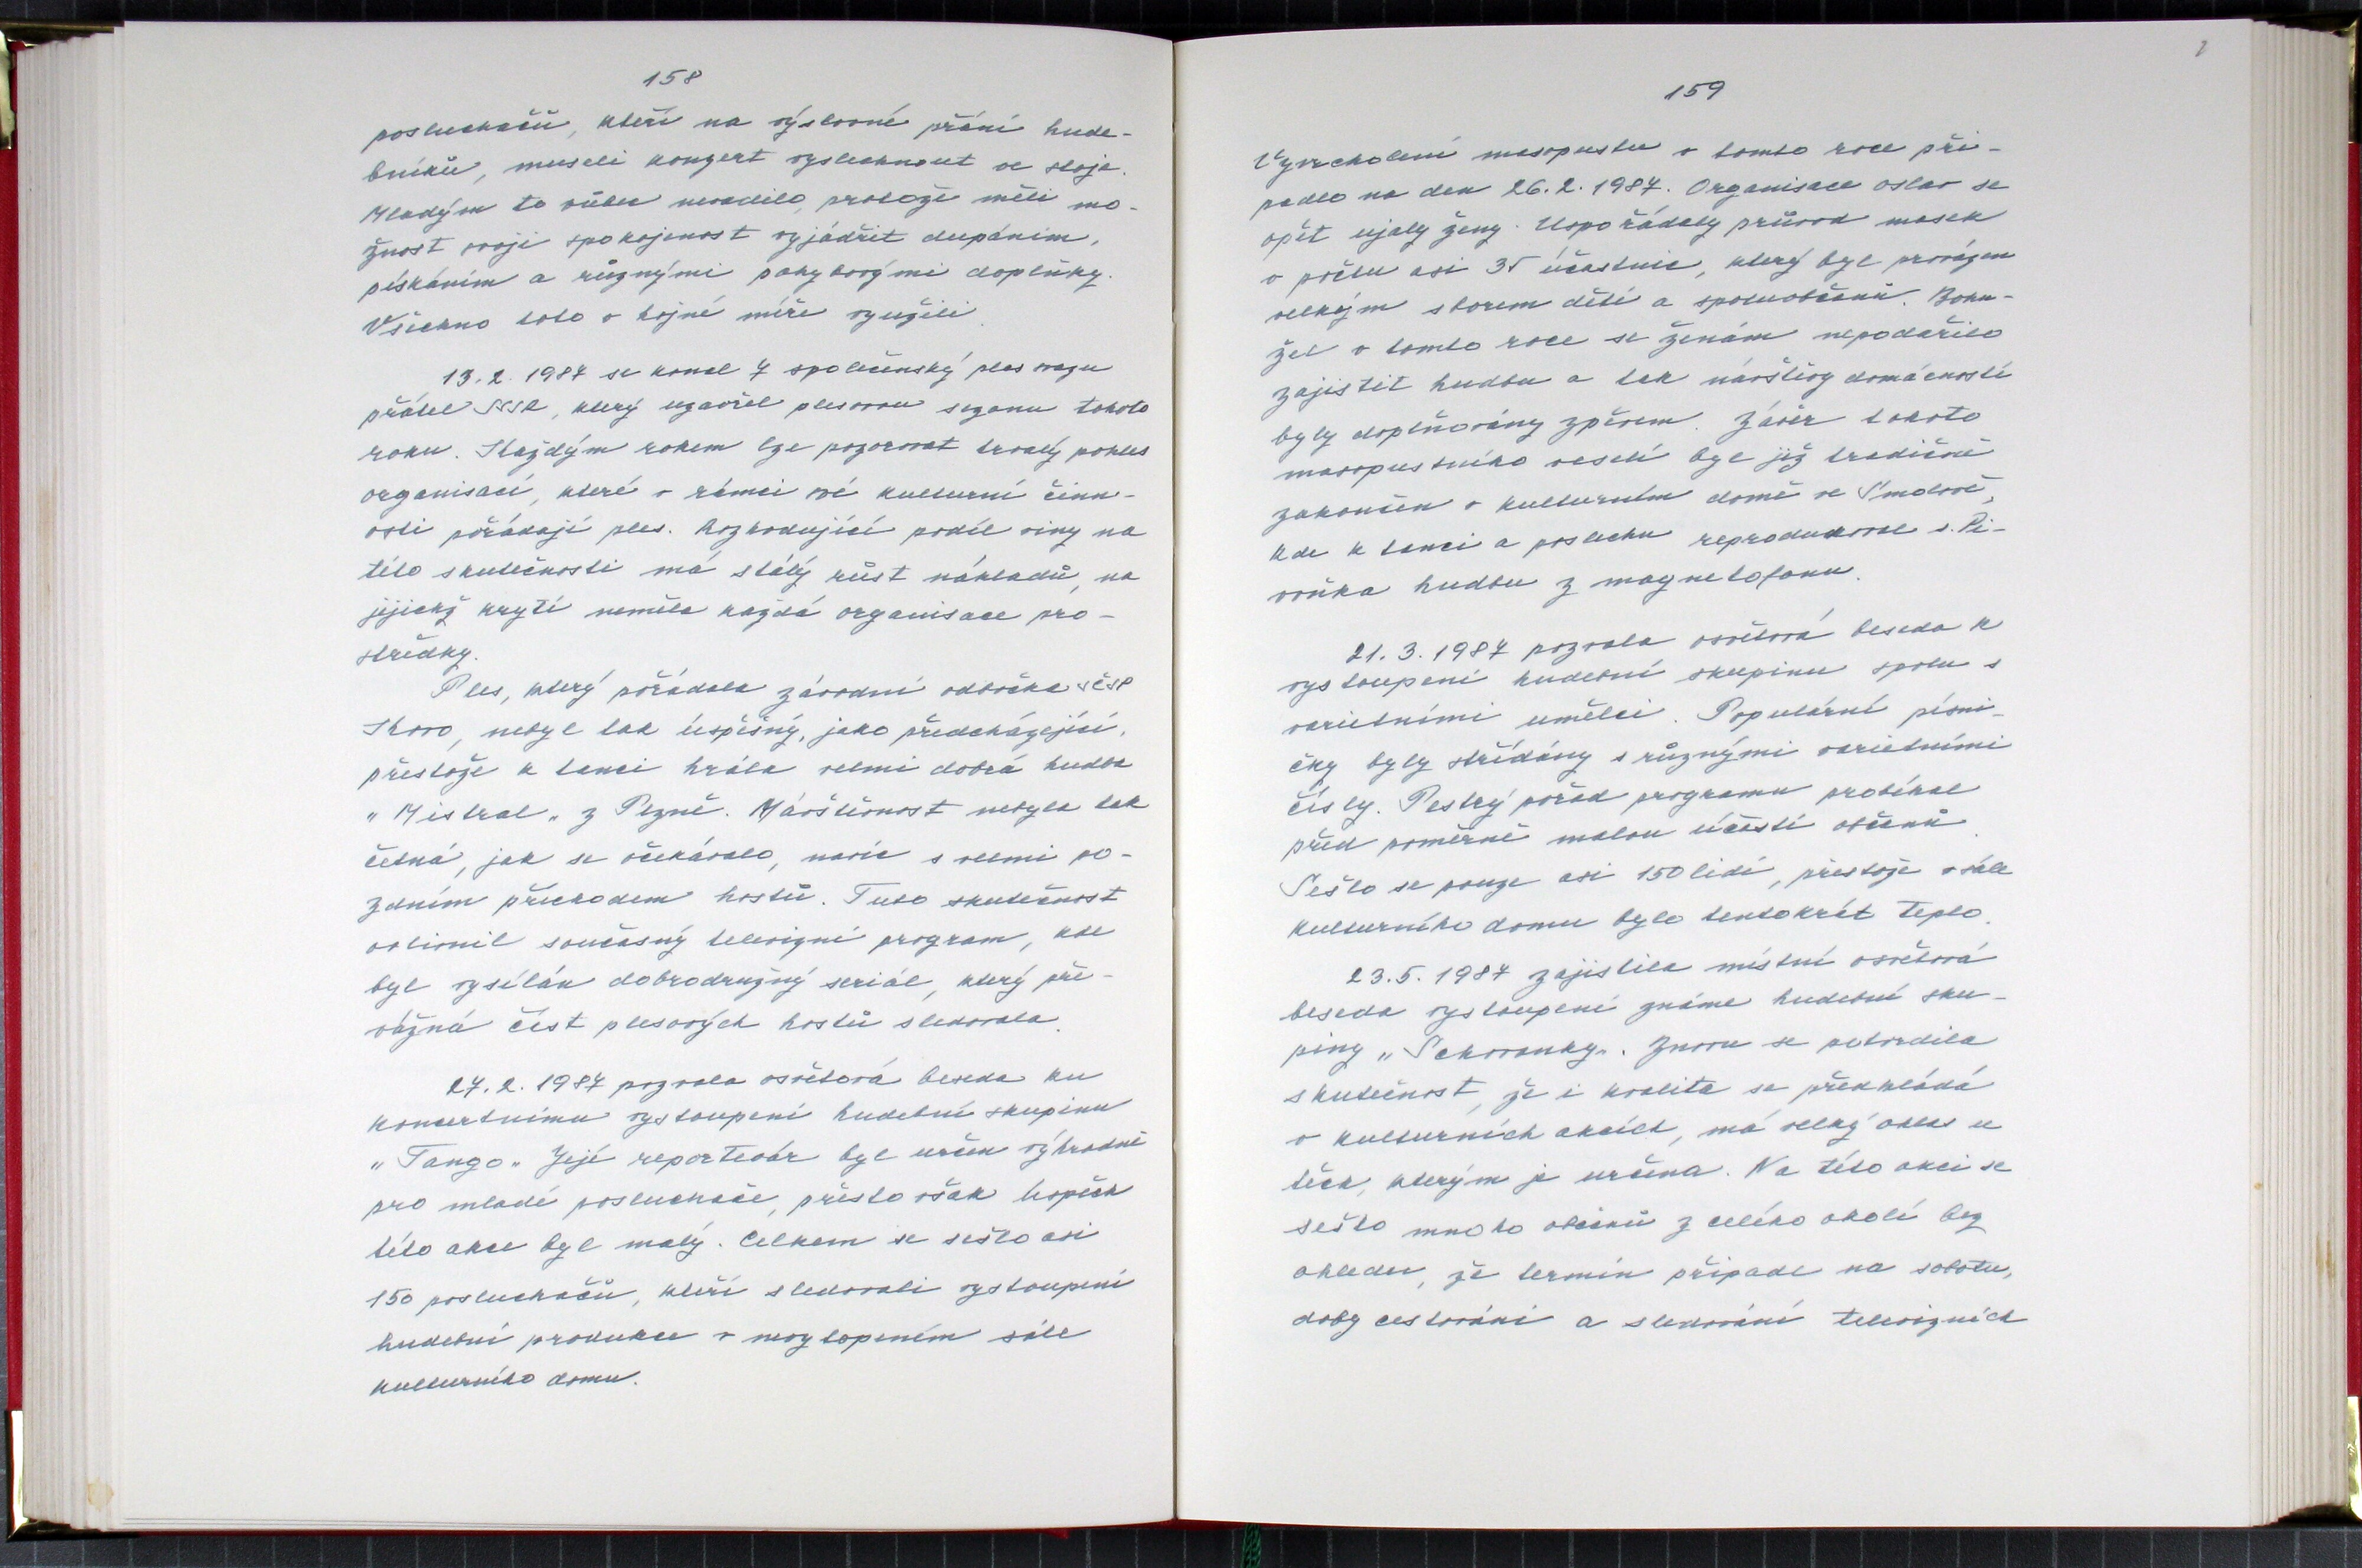 158
posluchačů, kteří na výslovné přání hude-
bníků, museli konzert vyslechnout ve stoje.
Mladým to vůbec nevadilo, protože měli mo-
žnost svoji spokojenost vyjádřit dupáním,
pískáním a různými pohybovými doplňky.
Všechno toto v hojné míře využili.
13.2.1987 se konal 7 společenský ples svazu
přátel SSSR, který uzavřel plesovou sezonu tohoto
roku. Každým rokem lze pozorovat trvalý pokles
organisací, které v rámci své kulturní činn-
osti pořádají ples. Rozhodující podíl viny na
této skutečnosti má stálý růst nákladů, na
jejichž krytí neměla každá organisace pro-
středky.
Ples, který pořádala závodní odbočka SČSP
Škovo, nebyl tak úspěšný, jako předcházející,
přestože k tanci hrála velmi dobrá hudba
"Mistral" z Plzně. Návštěvnost nebyla tak
četná, jak se očekávalo, navíc s velmi po-
zdním příchodem hostů. Tuto skutečnost
ovlivnil současný televizní program, kde
byl vysílán dobrodružný seriál, který pře-
vážná část plesových hostů sledovala.
27.2.1987 pozvala osvětová beseda ku
koncertnímu vystoupení hudební skupinu
"Tango" Její reportevár byl určen výhradně
pro mladé posluchače, přesto však úspěch
této akce byl malý. Celkem se sešlo asi
150 posluchačů, kteří sledovali vystoupení
hudební produkce v nevytopeném sále
kulturního domu.
159
Vyvrcholení masopustu v tomto roce při-
padlo na den 26.2.1987. Organisace oslav se
opět ujaly ženy. Uspořádaly průvod masek
v počtu asi 35 účastnic, který byl provázen
velkým sborem dětí a spoluobčanů. Bohu-
žel v tomto roce se ženám nepodařilo
zajistit hudbu a tak návštěvy domácností
byly doplňovány zpěvem. Závěr tohoto
masopustního veselí byl již tradičně
zakončen v kulturním domě ve Smolově,
kde k tanci a poslechu reprodukoval s. Pi-
voňka hudbu z magnetofonu.
21.3.1987 pozvala osvětová beseda k
vystoupení hudební skupinu spolu s
varietními umělci. Populární písni-
čky byly střídány s různými varietními
čísly. Pestrý pořad programu probíhal
před poměrně malou účastí občanů.
Sešlo se pouze asi 150 lidí, přestože v sále
kulturního domu bylo tentokrát teplo.
23.5.1987 zajistila místní osvětová
beseda vystoupení známe hudební sku-
piny "Sekvranky". Znovu se potvrdila
skutečnost, že i kvalita se předkládá
v kulturních akcích, má velký ohlas u
těch, kterým je určena. Na této akci se
sešlo mnoho občanů z celého okolí bez
ohledu, že termín připadl na sobotu,
doby cestování a sledování televizních